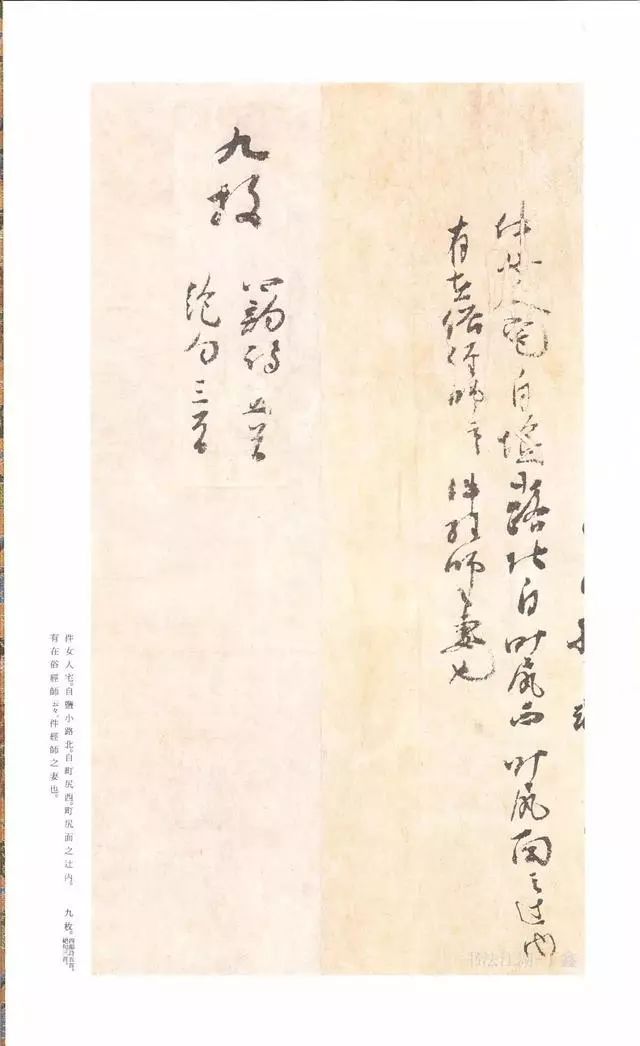 件女人宅自塩小路北自町尻西町尻面之辻内
有在俗経師云々件経師之妻也
九枚
四韻詩五首
絶句三首
件女人宅。自鹽小路北。自町尻西。町尻面之辻内。
有在俗經師云々。件經師之妻也。
九枚。四韻詩五首。絕句三首。
书法江湖
鑫